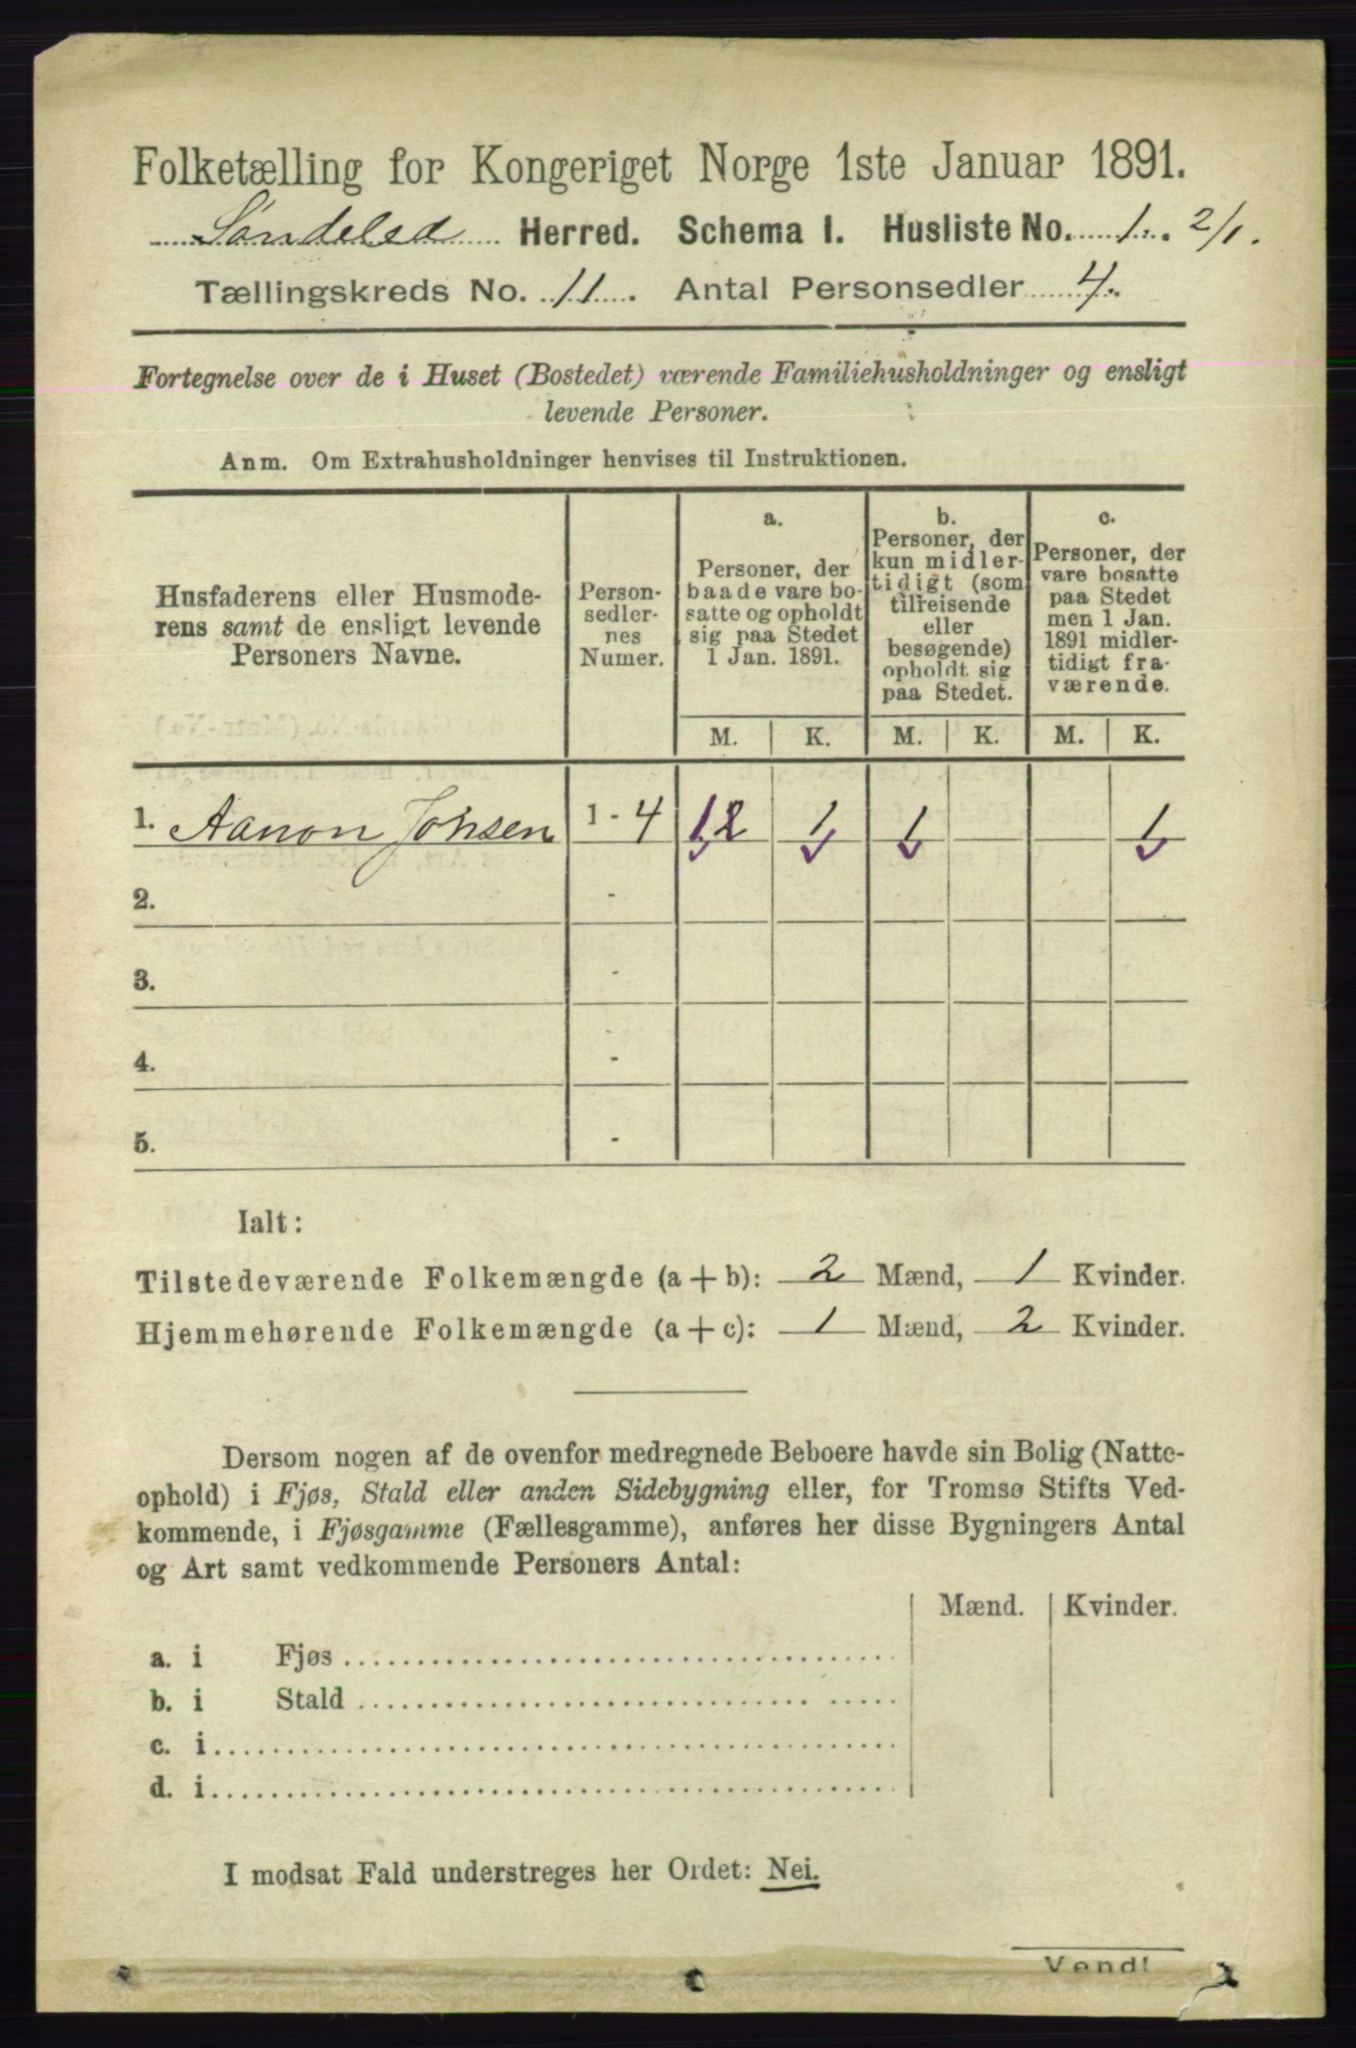 Folketælling for Kongeriget Norge 1ste Januar 1891.
Søndeled Herred. Schema I. Husliste No. 1. 2/1.
Tællingskreds No. 11. Antal Personsedler 4.
Fortegnelse over de i Huset (Bostedet) værende Familiehusholdninger og ensligt
levende Personer.
Anm. Om Extrahusholdninger henvises til Instruktionen.
Husfaderens eller Husmode-
rens samt de ensligt levende
Personers Navne.
Person-
sedler-
nes
Numer.
a.
Personer, der
baade vare bo-
satte og opholdt
sig paa Stedet
1 Jan. 1891.
b.
Personer, der
kun midler-
tidigt (som
tilreisende
eller
besøgende)
opholdt sig
paa Stedet.
c.
Personer, der
vare bosatte
paa Stedet
men 1 Jan.
1891 midler-
tidigt fra-
værende.
M. K. M. K. M. K.
1. Aanon Johsen 1 - 4 12 1 1 1
2. -
3. -
4. -
5. -
Ialt:
Tilstedeværende Folkemængde (a + b): 2 Mænd, 1 Kvinder.
Hjemmehørende Folkemængde (a + c): 1 Mænd, 2 Kvinder.
Dersom nogen af de ovenfor medregnede Beboere havde sin Bolig (Natte-
ophold) i Fjøs, Stald eller anden Sidebygning eller, for Tromsø Stifts Ved-
kommende, i Fjøsgamme (Fællesgamme), anføres her disse Bygningers Antal
og Art samt vedkommende Personers Antal:
Mænd. Kvinder.
a. i Fjøs
b. i Stald
c. i
d. i
I modsat Fald understreges her Ordet: Nei.
Vend!